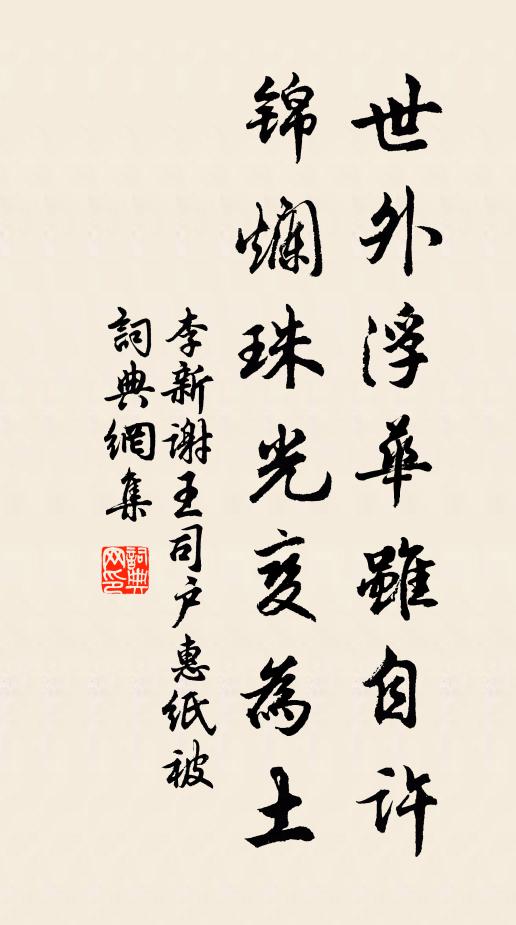 世外浮華雖自許
錦爛珠光变為土
李新谢王司户惠紙被
詞典網集
詞典网印